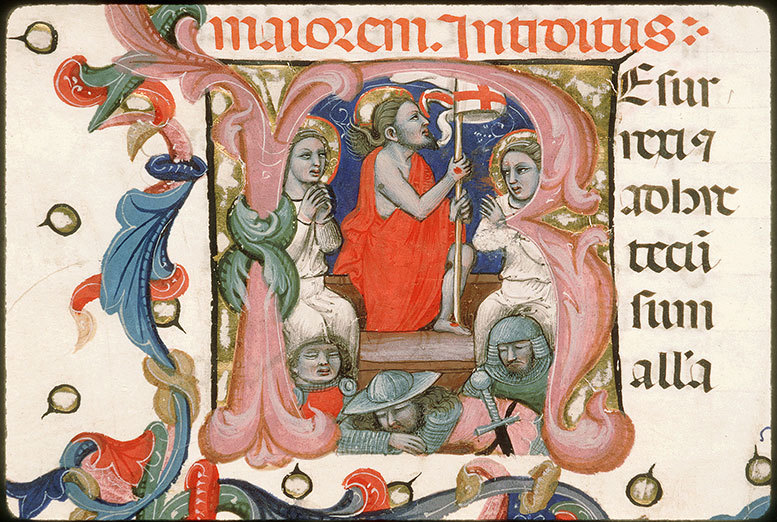 maiorem. Introitus:
Resur
rexi ⁊
adhuc
tecū
sum
all'a